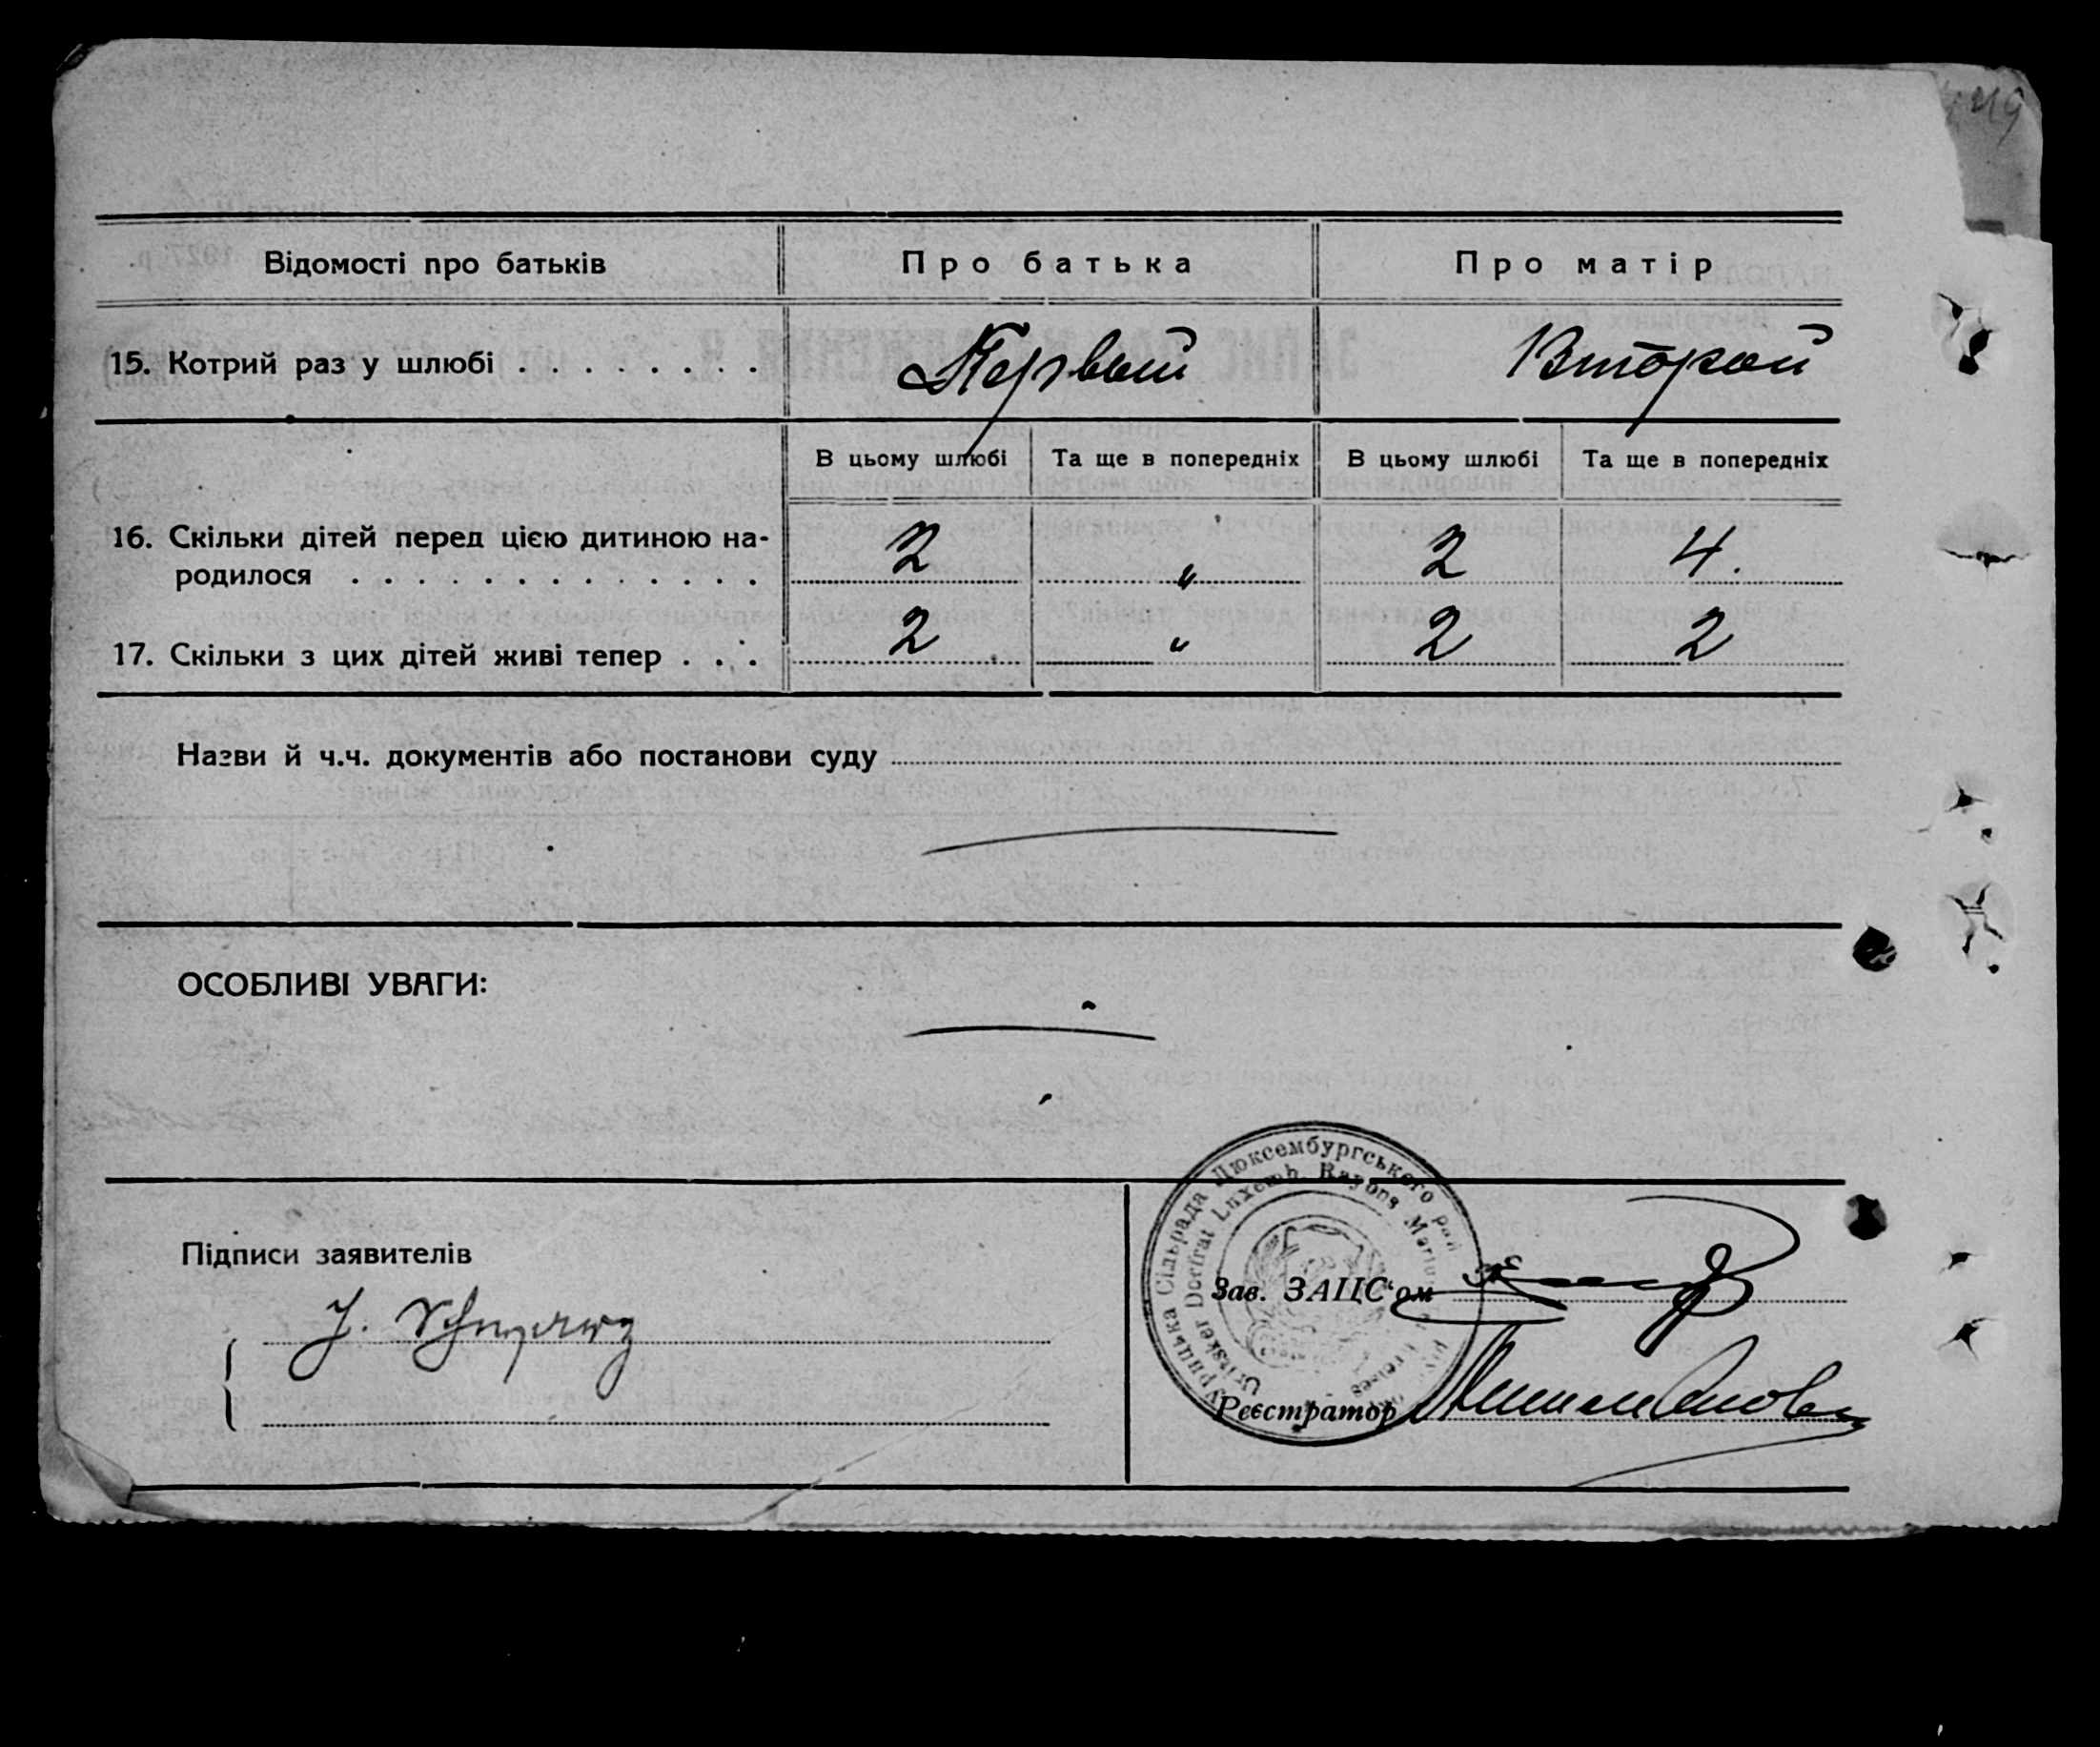 Відомості про батьків Про батька Про матір
15. Котрий раз у шлюбі . . . . . . . . Первый Второй
В цьому шлюбі Та ще в попередніх В цьому шлюбі Та ще в попередніх
16. Скільки дітей перед цією дитиною на-
родилося . . . . . . . . . . . . . 2 " 2 4.
17. Скільки з цих дітей живі тепер . . . 2 " 2 2
Назви й ч.ч. документів або постанови суду
ОСОБЛИВІ УВАГИ:
Сільрада Люксембургського рай
Dorfrat Luxemb. Rayons
Підписи заявителів
Зав. ЗАЦС'ом
J.
Реєстратор